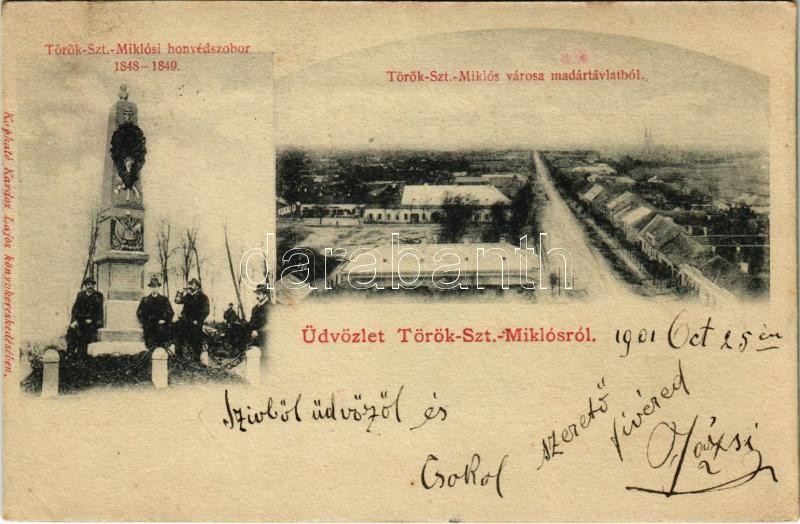 Török-Szt.-Miklósi honvédszobor
1848–1849.
Török-Szt.-Miklós városa madártávlatból.
Kapható Kardos Lajos könyvkereskedésében.
darabanth.com
Üdvözlet Török-Szt.-Miklósról.
1901 Oct 25 én
Szivből üdvözöl és
Csokol
szerető
fivéred
Józsi